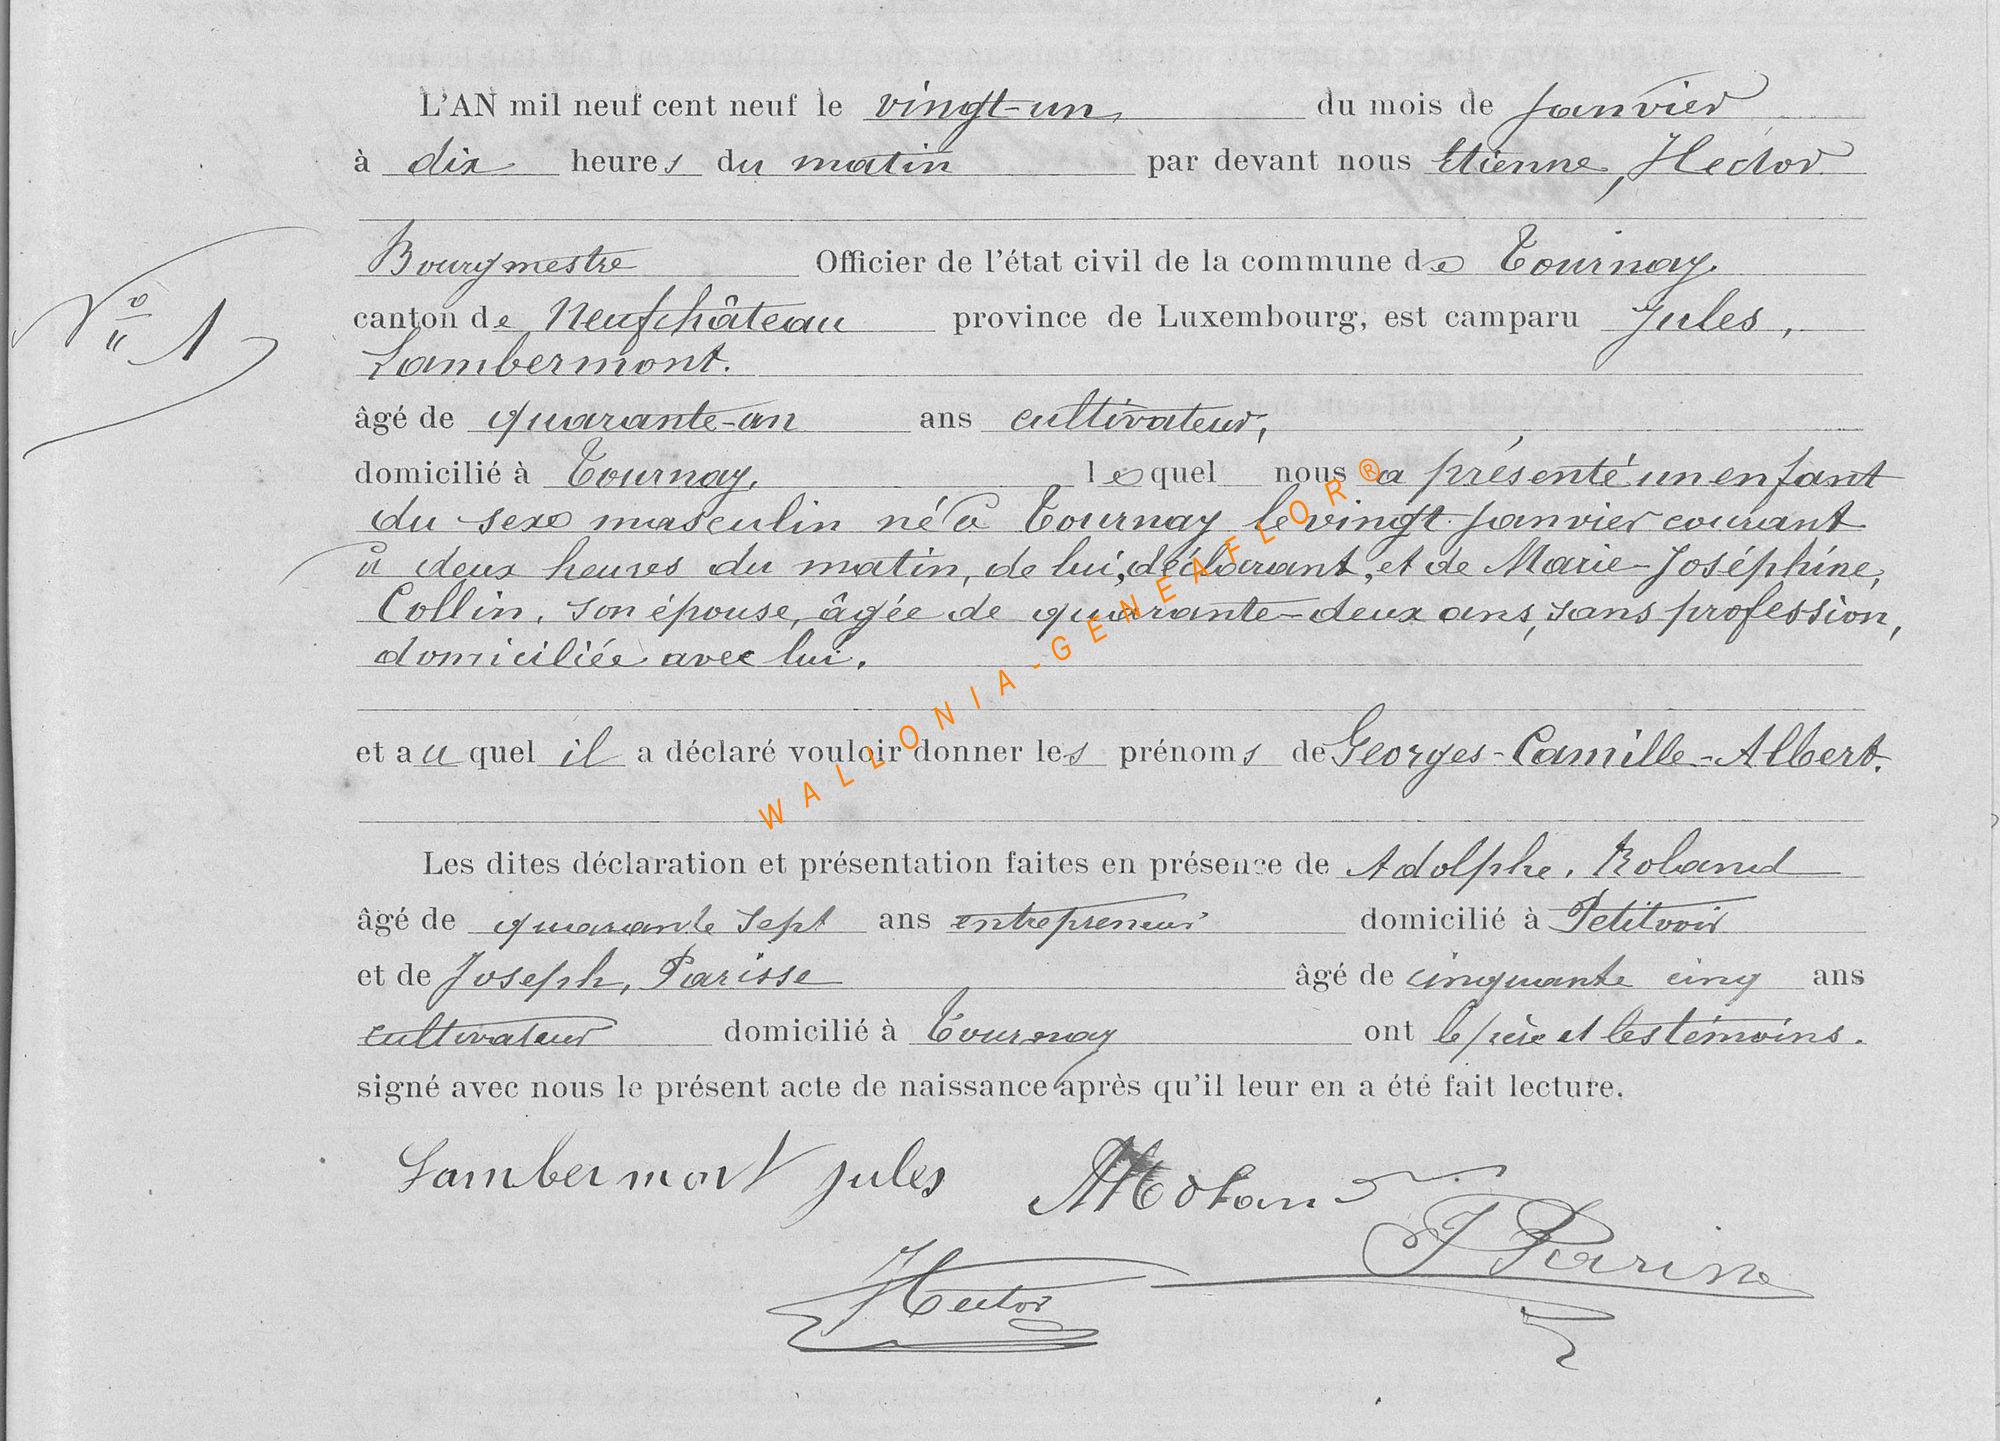 L'AN mil neuf cent neuf le vingt-un, du mois de Janvier
à dix heures du matin par devant nous Etienne, Hector
Bourgmestre Officier de l'état civil de la commune de Tournay.
N° 1
canton de Neufchâteau province de Luxembourg, est camparu Jules,
Lambermont.
âgé de quarante-un ans cultivateur,
domicilié à Tournay, lequel nous a présenté un enfant
du sexe masculin né à Tournay le vingt Janvier courant
à deux heures du matin, de lui, déclarant, et de Marie-Joséphine,
Collin, son épouse, âgée de quarante-deux ans, sans profession,
domiciliée avec lui.
et au quel il a déclaré vouloir donner les prénoms de Georges-Camille-Albert.
WALLONIA-GENEAFLOR®
Les dites déclaration et présentation faites en présence de Adolphe, Roland
âgé de quarante sept ans entrepreneur domicilié à Petitvoir
et de Joseph, Parisse âgé de cinquante cinq ans
cultivateur domicilié à Tournay ont le père et les témoins.
signé avec nous le présent acte de naissance après qu'il leur en a été fait lecture.
Lambermont Jules
Hector